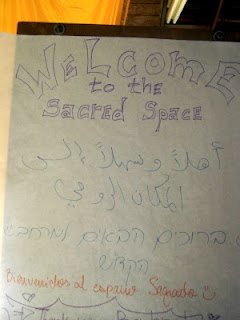 WELCOME
to the
Sacred Space
أهلاً وسهلاً إلى
المكان الروحي
ברוכים הבאים למרחב
הקדוש
Bienvenidos al espacio Sagrado